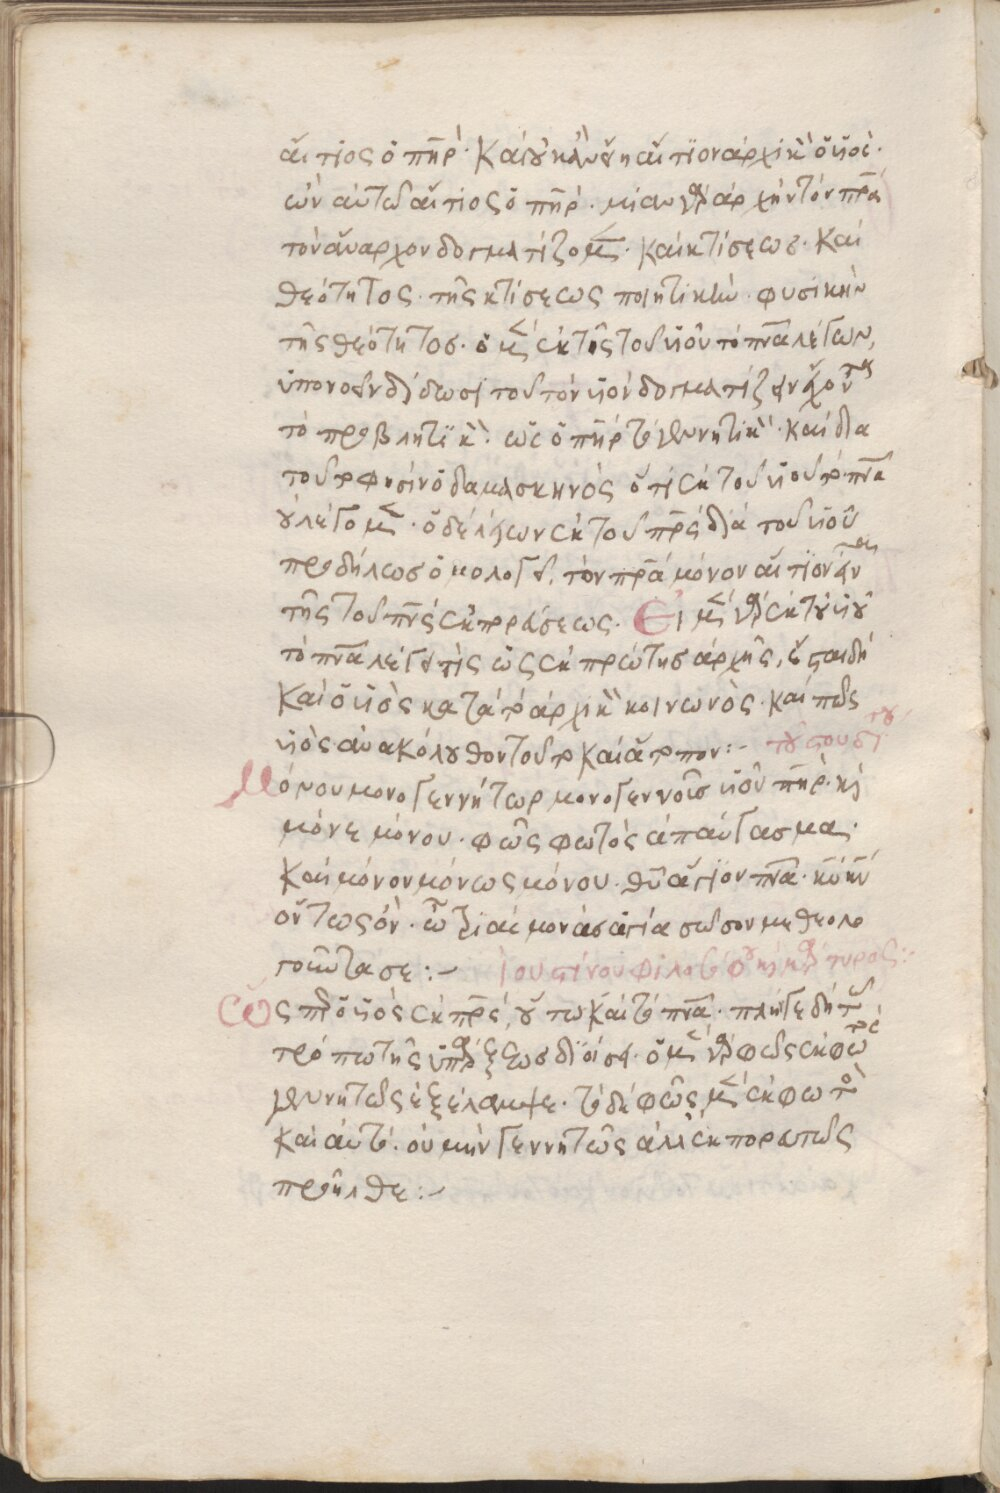 αἴτιος ὁ πηρ. Καὶ οὐ κωλύει αἴτιον ἀρχικὸν ὁ υἱός.
ὧν αὐτῶ αἴτιος ὁ πηρ. μίαν γὰρ ἀρχὴν τὸν πρα
τὸν ἄναρχον δογματίζομεν. καὶ κτίσεως. καὶ
θεότητος. τῆς κτίσεως ποιητικὴν. φυσικὴν
τῆς θεότητος. ὁ μὲν ἐκ τῆς τοῦ υἱοῦ τὸ πνα λέγων,
ὑπονοεῖν δίδωσι τοῦτον υἱὸν δογματίζειν ἔχοντος
τὸ προβλητικὸν. ὡς ὁ πηρ τὸ γεννητικὸν. καὶ διὰ
τοῦτό φησιν ὁ δαμασκηνὸς ὅτι ἐκ τοῦ υἱοῦ τὸ πνα
οὐ λέγομεν. ὁ δὲ λέγων ἐκ τοῦ πρς διὰ τοῦ υἱοῦ
προδήλως ὁμολογεῖ, τὸν πρα μόνον αἴτιον εἶναι
τῆς τοῦ πνς ἐκπορεύσεως. Εἰ μὲν γὰρ ἐκ τοῦ υἱοῦ
τὸ πνα λέγει τις ὡς ἐκ πρώτης ἀρχῆς, ἐπειδὴ
καὶ ὁ υἱὸς κατὰ τὸ ἀρχικὸν κοινωνὸς. καὶ πῶς
υἱὸς ἀνακόλουθον τοῦτο καὶ ἄτοπον :- τοῦ σουδι
Μόνου μονογεννήτωρ μονογενοῦς υἱοῦ πηρ. καὶ
μόνε μόνου. φῶς φωτὸς ἀπαύγασμα.
Καὶ μόνον μόνως μόνου. θυ ἅγιον πνα. κυ κν
ὄντως ὄν. ὦ τριὰς μονὰς ἁγία σῶσον με θεολο
γοῦντα σε :- Ἰουστίνου φιλοσόφου καὶ μάρτυρος :-
Ὥσπερ ὁ υἱὸς ἐκ πρς, οὕτω καὶ τὸ πνα. πλὴν γε δὴ τῶ
τρόπω τῆς ὑπάρξεως διοίσει. ὁ μὲν γὰρ φῶς ἐκ φωτὸς
γεννητῶς ἐξέλαμψε. τὸ δὲ φῶς μὲν ἐκ φωτὸς
καὶ αὐτὸ. οὐ μὴν γεννητῶς ἀλλ' ἐκπορευτῶς
προῆλθε :-